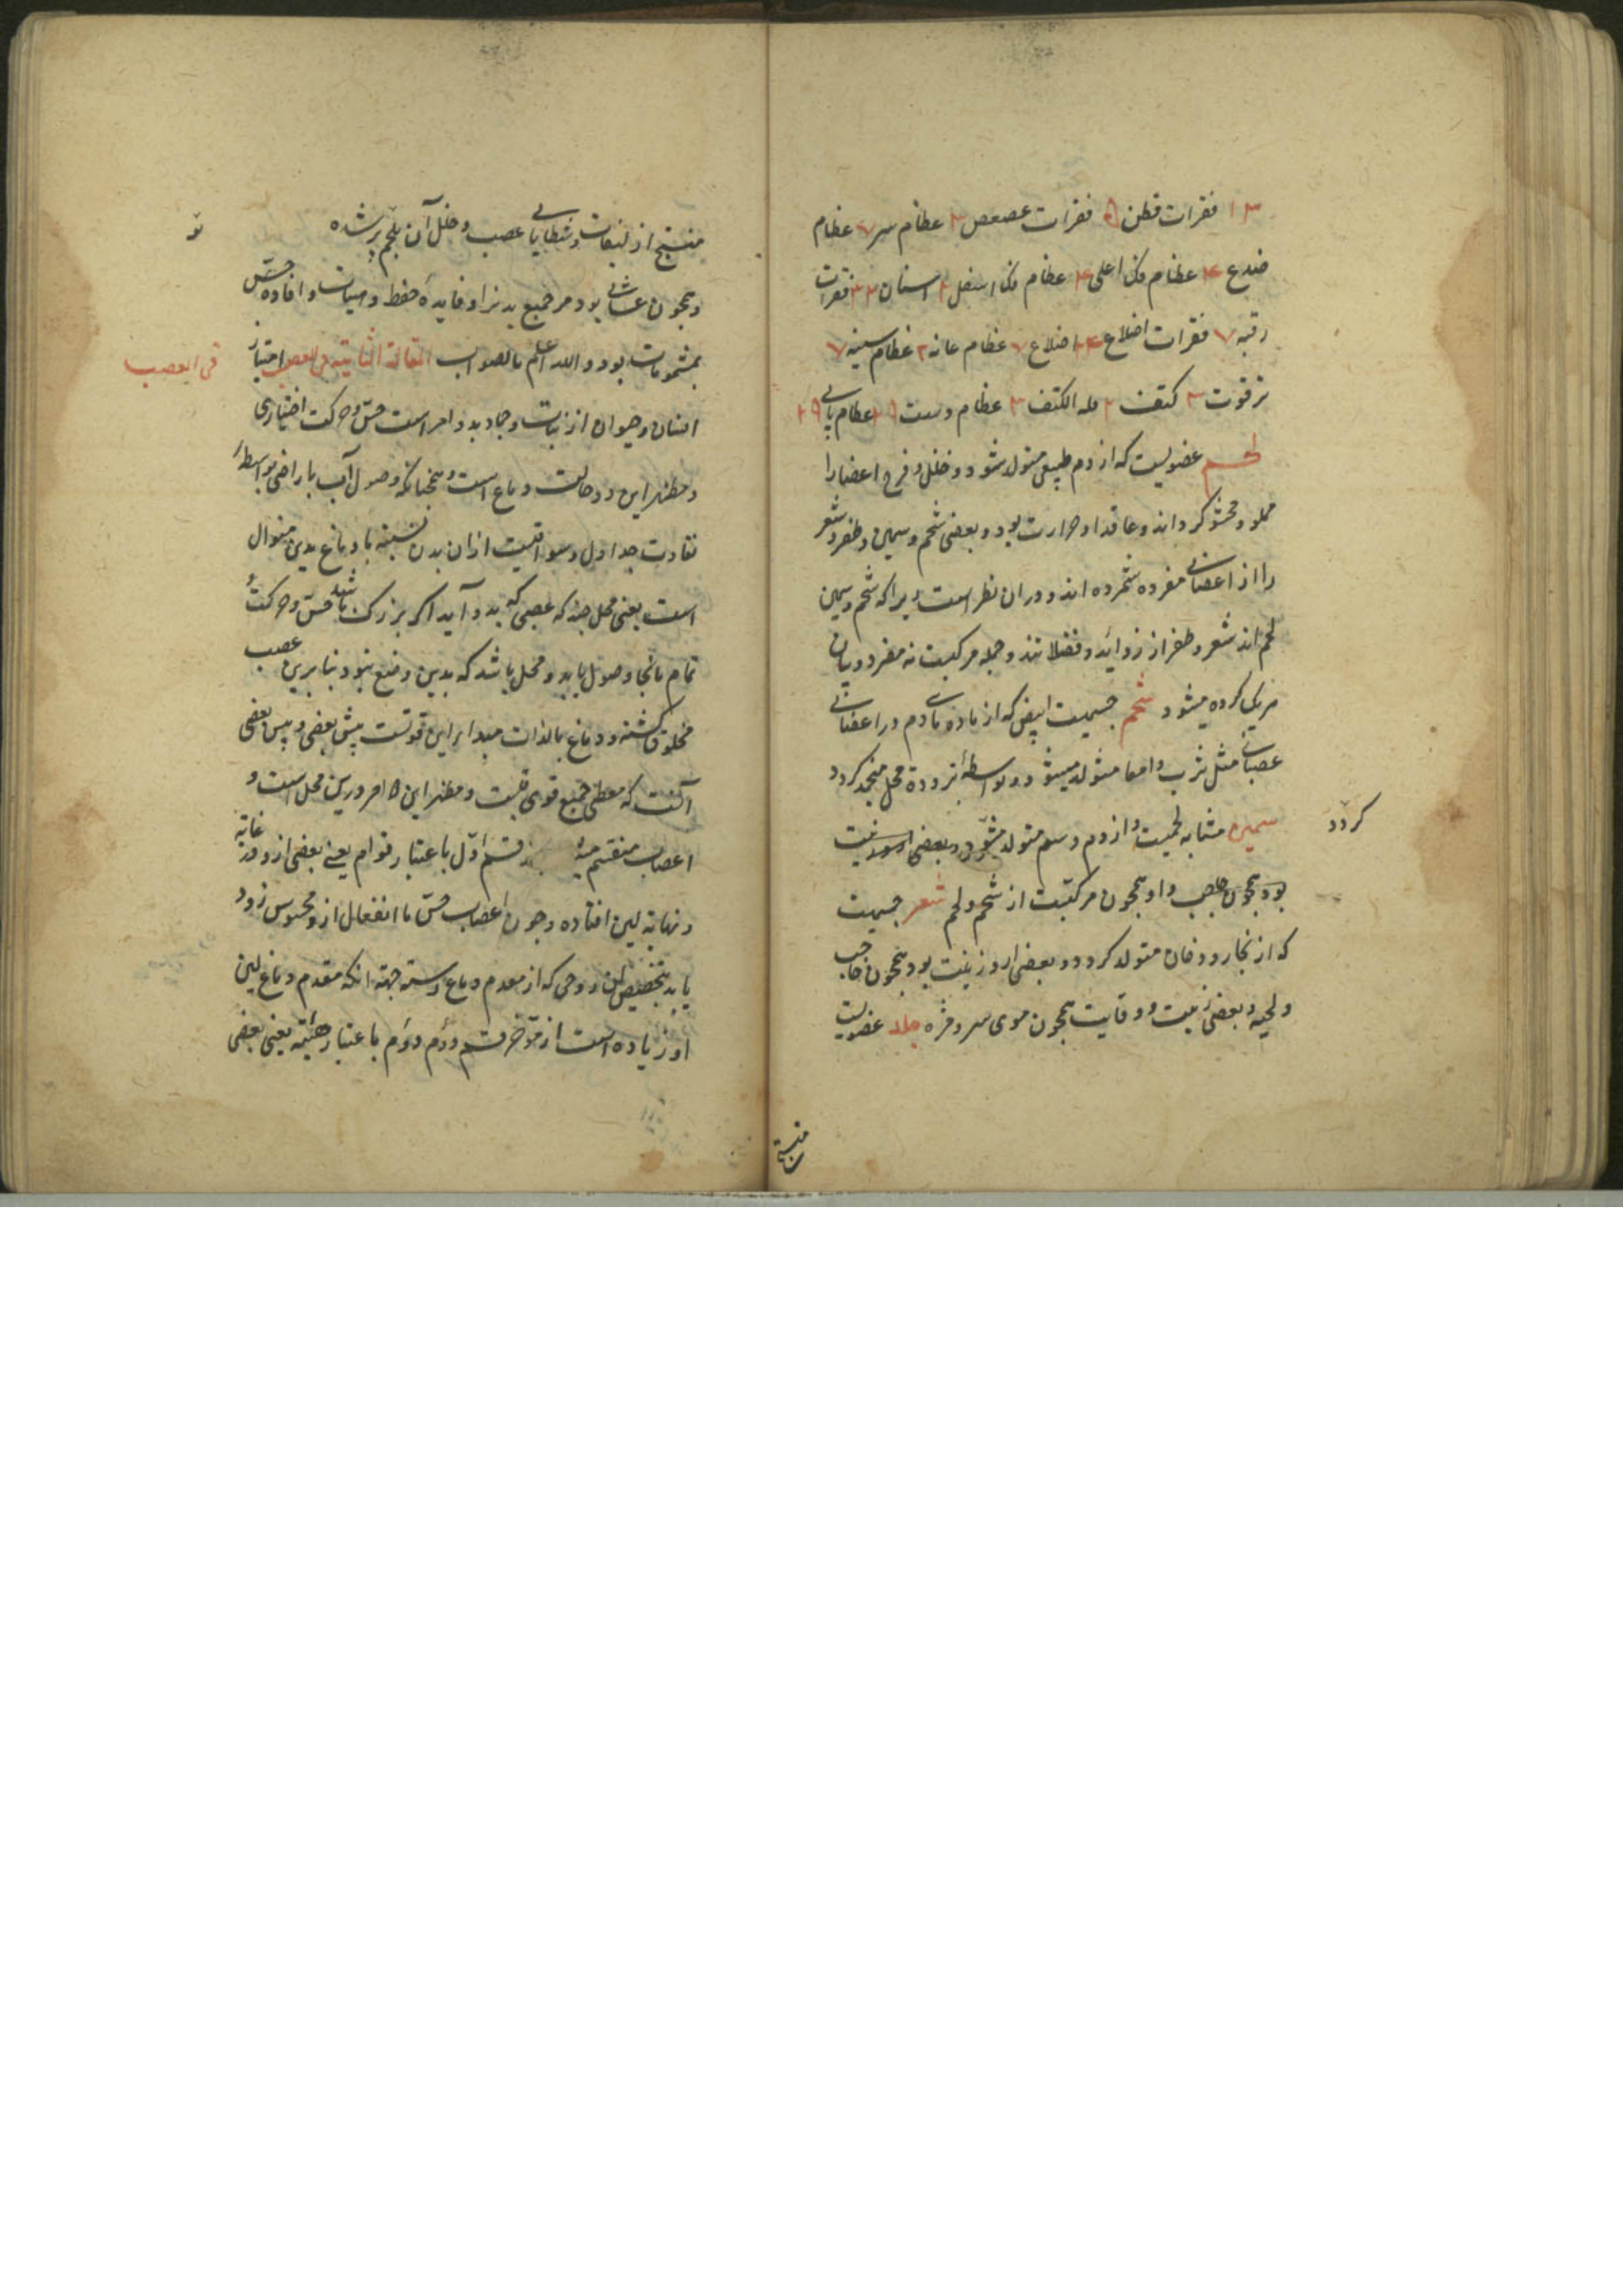 ۱۳ فقرات قطن ۵ فقرات عصعص ۳ عظام سر ۷ عظام
صدغ ۴ عظام فک اعلی ۱۴ عظام فک اسفل ۲ اسنان ۳۲ فقرات
رقبه ۷ فقرات اضلاع ۲۴ اضلاع ۷ عظام عانه ۲ عظام سینه ۷
ترقوت ۲ کتف ۲ قله الکتف ۲ عظام دست عظام پای
لحم عضویست که از دم طبیعی متولد شود و خلل و فرج اعضا را
مملو و محشو کرداند و عاقد او حرارت بود و بعضی شحم و سمین و ظفر و شعر
را از اعضای مفرده شمرده اند و در ان نظر است زیرا که شحم و سمین
لحم اند شعر و ظفر از زواید و فضلا تند و جمله مرکبست نه مفرد و بیان
هر یک کرده میشود شحم جسمیست ابیض که از ماده مای دم در اعضای
عصبانی مثل ثرب و امعا متولد میشود و بواسطهٔ برودة محل منجمد کردد
کردد
سمین مشابه لحمیست و از دم دسم متولد میشود و بعضی
بود همچون و او همچون مرکبست از شحم و لحم شعر جسمیست
که از بخار دخان متولد کردد و بعضی از و زینت بود همچون حاجب
و لحیه و بعضی زینت و وقایت همچون موی سر و مژه جلد عضویست
منتسج
منتسج از لیفات و شظایای عصب و خلل آن بلحم پر شده
و همچون غشائی بود مر جمیع بدنرا و فایدهٔ حفظ و صیانت و افاده حسّ
بمشمومات بود و الله اعلم بالصواب المقالة الثانیة فی العصب امتیاز
فی العصب
انسان و حیوان از نبات و جماد بدو امر است حسّ و حرکت اختیاری
و مظهر این دو حالت دماغ است و همچنانکه وصول آب باراضی بواسطهٔ
تفاوت جداول و سواقیست از ان بدن نسبة با دماغ بدین منوال
است یعنی محل چند که عصبی که بدو آید اکر بزرک باشد حسّ و حرکت
تمام بانجا وصول یابد و محل باشد که بدین وضع نبود بنا برین عصب
مخلوق کشته و دماغ بالذات مبدا براین قوتست پیش بعضی و پیش بعضی
آنست که معطی جمیع قوی قلبست و مظهر این دو امر درین محل است و
اعصاب منقسم قسم اوّل باعتبار قوام یعنی بعضی از و در غایة
و نهایة لین افتاده و چون اعصاب حسّ تا انفعال از و محسوس زود
یابد بتخصیص ان زوجی که از مقدم دماغ رسته جهة انکه مقدم دماغ لین
او زیاده است از مؤخر قسم دوّم باعتبار هیئة یعنی بعضی